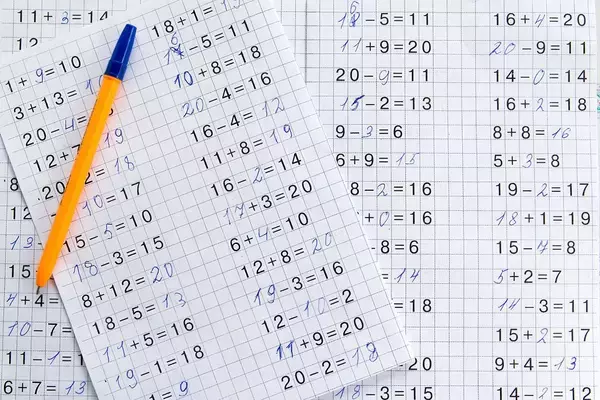 11+3=14
12
1+9=10
3+13=
20-4=
12+7 19
20-2=18
10=17
15-5=10
18-3=15
8+12=20
18-5=13
11+5=16
19-1=18
=9
18+1=
16-5=11
10+8=18
20-4=16
16-4=12
11+8=19
16-2=14
17+3=20
6+4=10
12+8=20
19-3=16
12-10=2
11+9=20
20-2=18
8
12
13-
15-
4+4=
10-7=
11-1=
6+7=13
16-5=11
11+9=20
20-9=11
15-2=13
9-3=6
6+9=15
8-2=16
+0=16
-8=6
=14
=18
18-3=15
16+4=20
20-9=11
14-0=14
16+2=18
8+8=16
5+3=8
19-2=17
18+1=19
15-7=8
5+2=7
14-3=11
15+2=17
9+4=13
14-2=12